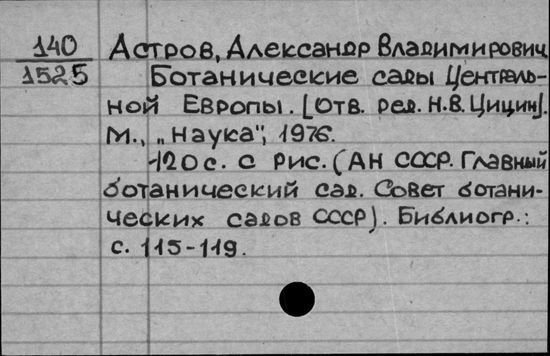 140 Астров, Александр Владимирович
1525 Ботанические сады Централь-
ной Европы. [Отв. ред. Н.В. Цицин].
М., „Наука", 1976.
120 с. с рис. (АН СССР. Главный
ботанический сад. Совет ботани-
ческих садов СССР). Библиогр.:
с. 115-119.